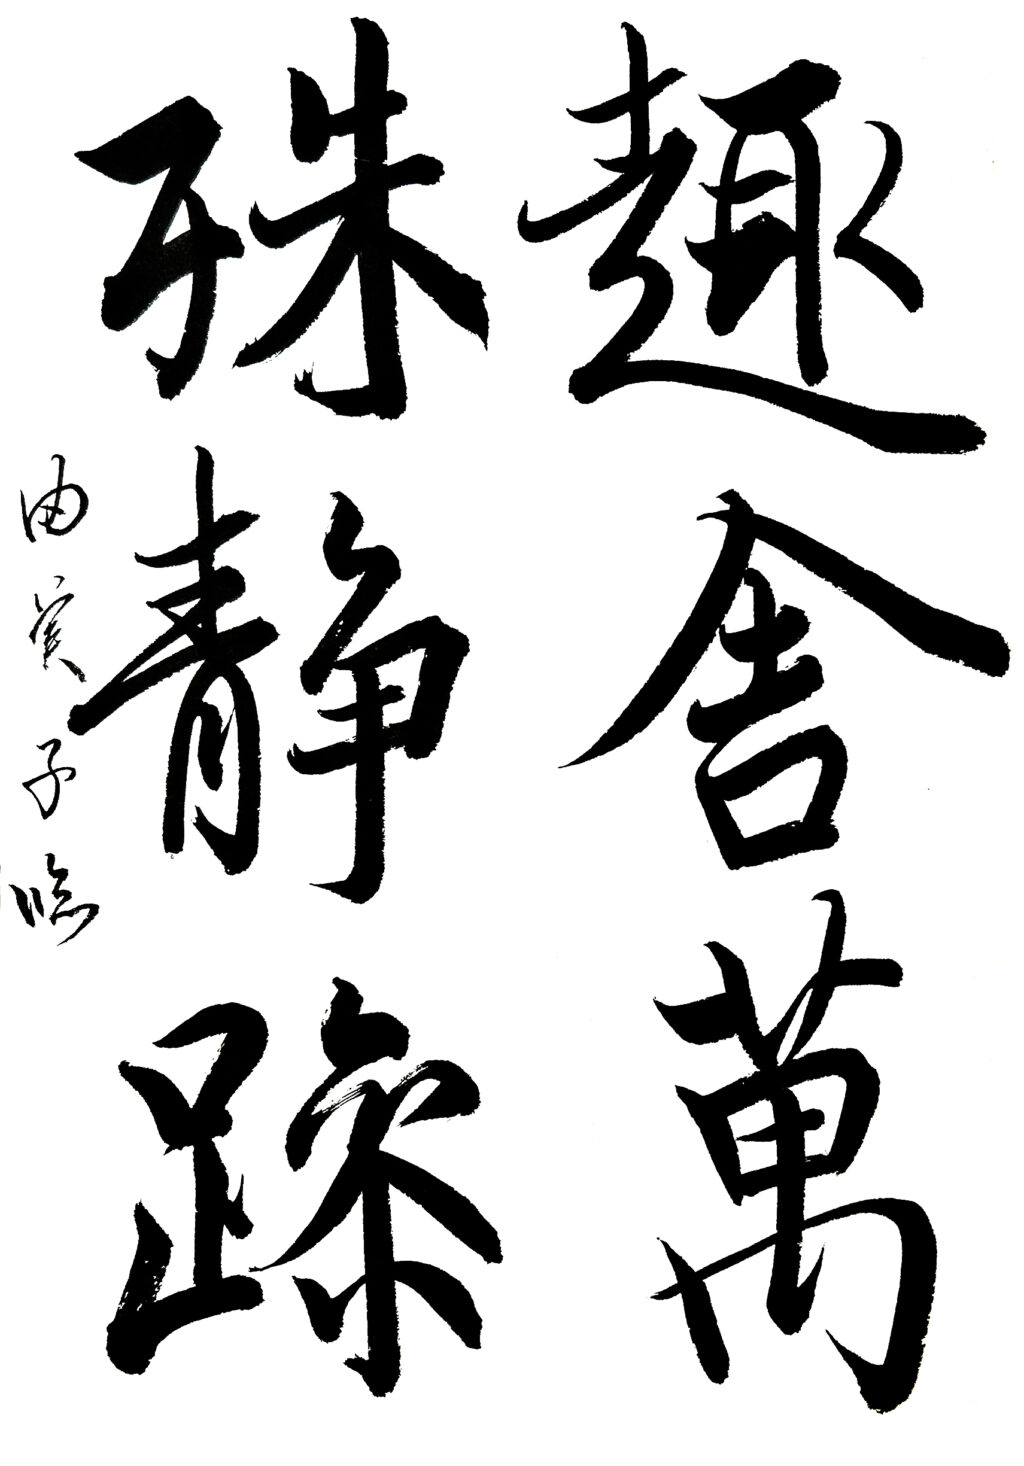 趣舎萬
殊静躁
由美子臨